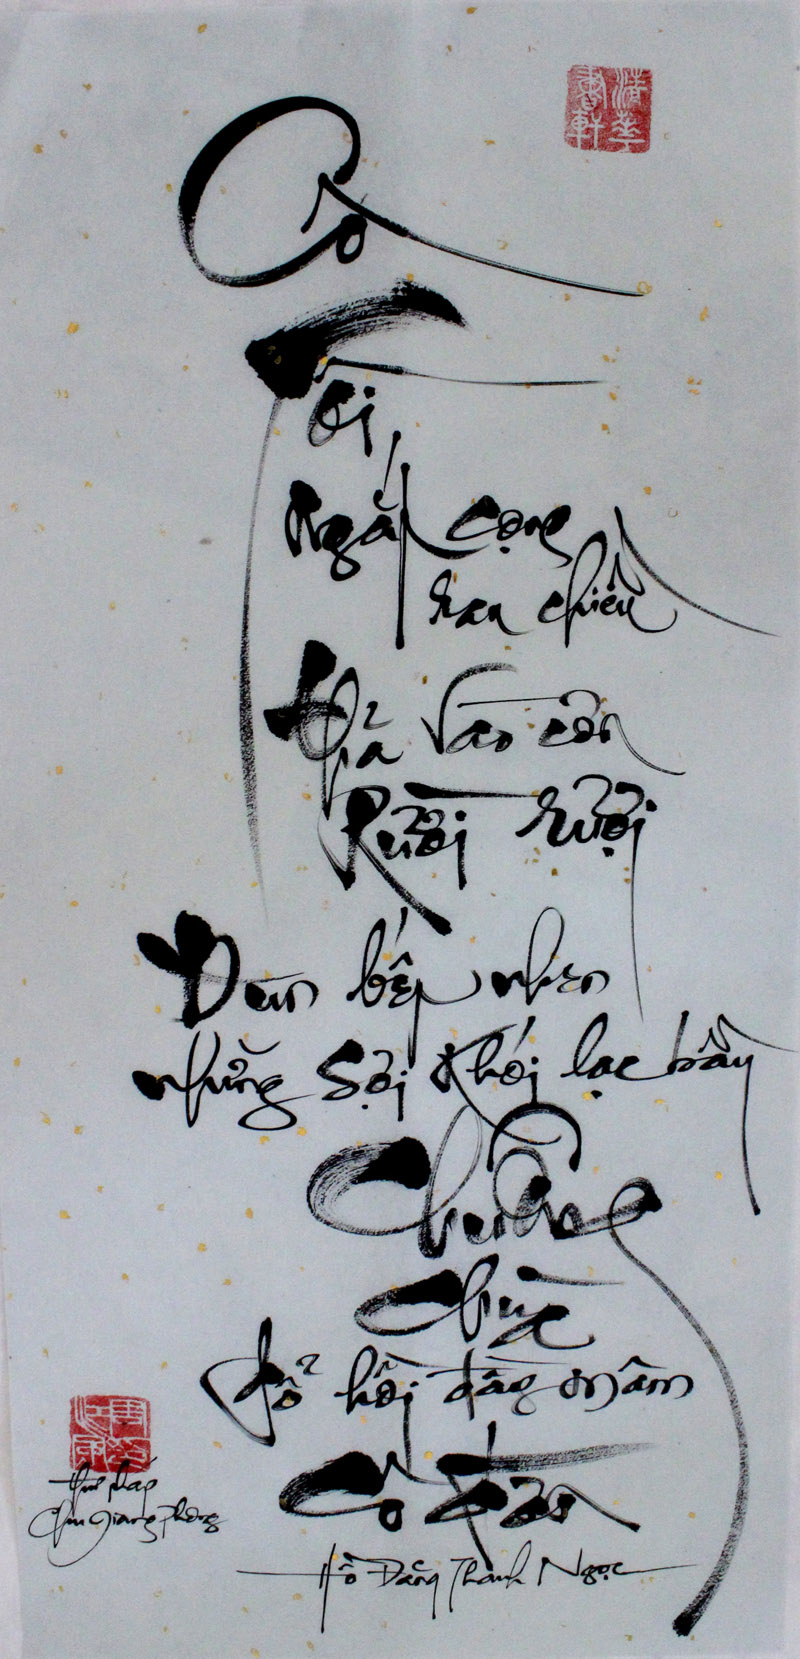 Cô
Tôi
Ngắt cọng
rau chiều
thả vào cơn
Rười rượi
Đun bếp nhen
những sợi khói lạc bầy
Chuông
chùa
đổ hồi đầy mâm
Cô đơn
Hồ Đăng Thanh Ngọc
thư pháp
Chu Giang Phong